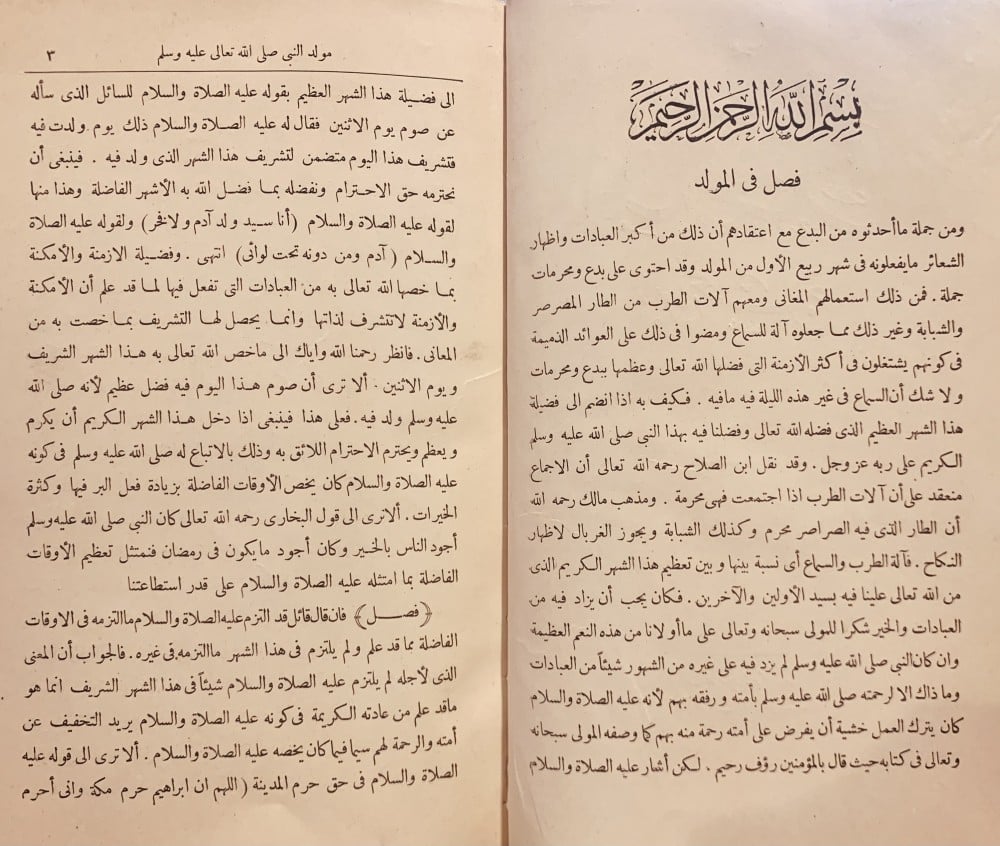 بسم الله الرحمن الرحيم
فصل فى المولد
ومن جملة ماأحدثوه من البدع مع اعتقادهم أن ذلك من أكبر العبادات واظهار
الشعائر مايفعلونه فى شهر ربيع الأول من المولد وقد احتوى على بدع ومحرمات
جملة . فمن ذلك استعمالهم المغانى ومعهم آلات الطرب من الطار المصرصر
والشبابة وغير ذلك مما جعلوه آلة للسماع ومضوا فى ذلك على العوائد الذميمة
فى كونهم يشتغلون فى أكثر الأزمنة التى فضلها الله تعالى وعظمها ببدع ومحرمات
ولا شك أن السماع فى غير هذه الليلة فيه مافيه . فكيف به اذا انضم الى فضيلة
هذا الشهر العظيم الذى فضله الله تعالى وفضلنا فيه بهذا النبى صلى الله عليه وسلم
الكريم على ربه عز وجل . وقد نقل ابن الصلاح رحمه الله تعالى أن الاجماع
منعقد على أن آلات الطرب اذا اجتمعت فهى محرمة . ومذهب مالك رحمه الله
أن الطار الذى فيه الصراصر محرم وكذلك الشبابة ويجوز الغربال لاظهار
النكاح . فآلة الطرب والسماع أى نسبة بينها وبين تعظيم هذا الشهر الكريم الذى
من الله تعالى علينا فيه بسيد الأولين والآخرين . فكان يجب أن يزاد فيه من
العبادات والخير شكرا للمولى سبحانه وتعالى على ماأولانا من هذه النعم العظيمة
وان كان النبى صلى الله عليه وسلم لم يزد فيه على غيره من الشهور شيئاً من العبادات
وما ذاك الا لرحمته صلى الله عليه وسلم بأمته ورفقه بهم لأنه عليه الصلاة والسلام
كان يترك العمل خشية أن يفرض على أمته رحمة منه بهم كما وصفه المولى سبحانه
وتعالى فى كتابه حيث قال بالمؤمنين رؤف رحيم . لكن أشار عليه الصلاة والسلام
مولد النبى صلى الله تعالى عليه وسلم ٣
الى فضيلة هذا الشهر العظيم بقوله عليه الصلاة والسلام للسائل الذى سأله
عن صوم يوم الاثنين فقال له عليه الصلاة والسلام ذلك يوم ولدت فيه
فتشريف هذا اليوم متضمن لتشريف هذا الشهر الذى ولد فيه . فينبغى أن
نحترمه حق الاحترام ونفضله بما فضل الله به الأشهر الفاضلة وهذا منها
لقوله عليه الصلاة والسلام (أنا سيد ولد آدم ولا فخر) ولقوله عليه الصلاة
والسلام (آدم ومن دونه تحت لوائى) انتهى . وفضيلة الازمنة والأمكنة
بما خصها الله تعالى به من العبادات التى تفعل فيها لما قد علم أن الأمكنة
والأزمنة لاتتشرف لذاتها وانما يحصل لها التشريف بما خصت به من
المعانى . فانظر رحمنا الله واياك الى ماخص الله تعالى به هذا الشهر الشريف
ويوم الاثنين . ألا ترى أن صوم هذا اليوم فيه فضل عظيم لأنه صلى الله
عليه وسلم ولد فيه . فعلى هذا فينبغى اذا دخل هذا الشهر الكريم أن يكرم
ويعظم ويحترم الاحترام اللائق به وذلك بالاتباع له صلى الله عليه وسلم فى كونه
عليه الصلاة والسلام كان يخص الأوقات الفاضلة بزيادة فعل البر فيها وكثرة
الخيرات . ألاترى الى قول البخارى رحمه الله تعالى كان النبى صلى الله عليه وسلم
أجود الناس بالخير وكان أجود مايكون فى رمضان فنمتثل تعظيم الأوقات
الفاضلة بما امتثله عليه الصلاة والسلام على قدر استطاعتنا
﴿فصل﴾ فان قال قائل قد التزم عليه الصلاة والسلام ماالتزمه فى الاوقات
الفاضلة بما قد علم ولم يلتزم فى هذا الشهر ماالتزمه فى غيره . فالجواب أن المعنى
الذى لأجله لم يلتزم عليه الصلاة والسلام شيئاً فى هذا الشهر الشريف انما هو
ماقد علم من عادته الكريمة فى كونه عليه الصلاة والسلام يريد التخفيف عن
أمته والرحمة لهم سيما فيما كان يخصه عليه الصلاة والسلام . ألا ترى الى قوله عليه
الصلاة والسلام فى حق حرم المدينة (اللهم ان ابراهيم حرم مكة وانى أحرم